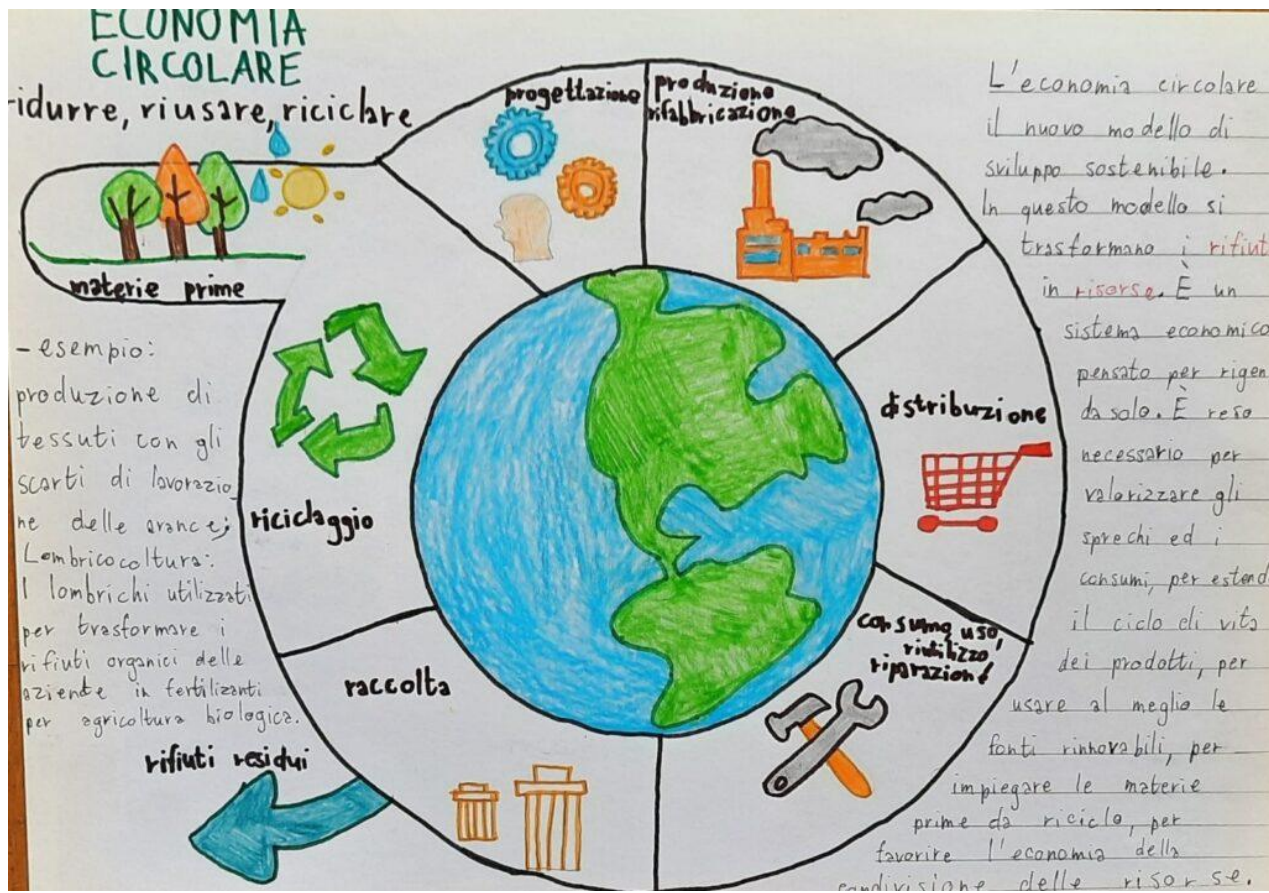 ECONOMIA
CIRCOLARE
idurre, riusare, riciclare
materie prime
progettazione
produzione
rifabbricazione
distribuzione
consumo, uso,
riutilizzo,
riparazione
raccolta
riciclaggio
rifiuti residui
- esempio:
produzione di
tessuti con gli
scarti di lavorazio_
ne delle arance;
Lombricocoltura:
I lombrichi utilizzati
per trasformare i
rifiuti organici delle
aziente in fertilizanti
per agricoltura biologica.
L'economia circolare
il nuovo modello di
sviluppo sostenibile.
In questo modello si
trasformano i rifiut
in risorse. È un
sistema economico
pensato per rigen
da solo. È reso
necessario per
valorizzare gli
sprechi ed i
consumi, per estend
il ciclo di vita
dei prodotti, per
usare al meglio le
fonti rinnovabili, per
impiegare le materie
prime da riciclo, per
favorire l'economia della
condivisione delle risorse.